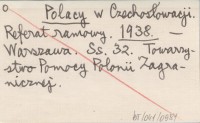 Polacy w Czechosłowacji.
Referat ramowy. 1938. —
Warszawa. Ss. 32. Towarzy-
stwo Pomocy Polonii Zagra-
nicznej.